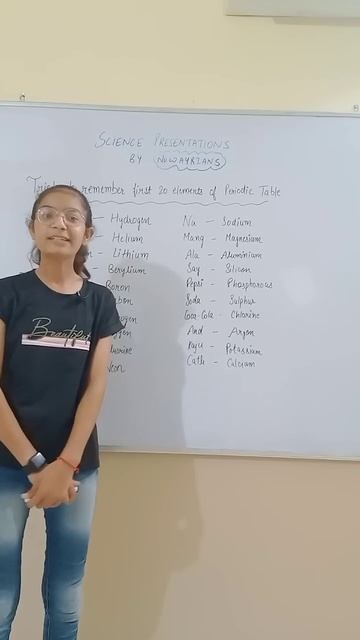 SCIENCE PRESENTATIONS
BY NUWAYRIANS
remember first 20 elements of Periodic Table
- Hydrogen
- Helium
- Lithium
Berylium
Boron
Neon
Na - Sodium
Mang - Magnesium
Ala - Aluminium
Say - Silicon
Pepsi - Phosphorous
Soda - Sulphur
Coca-Cola - Chlorine
And - Argon
Raju - Potassium
Cath - Calcium